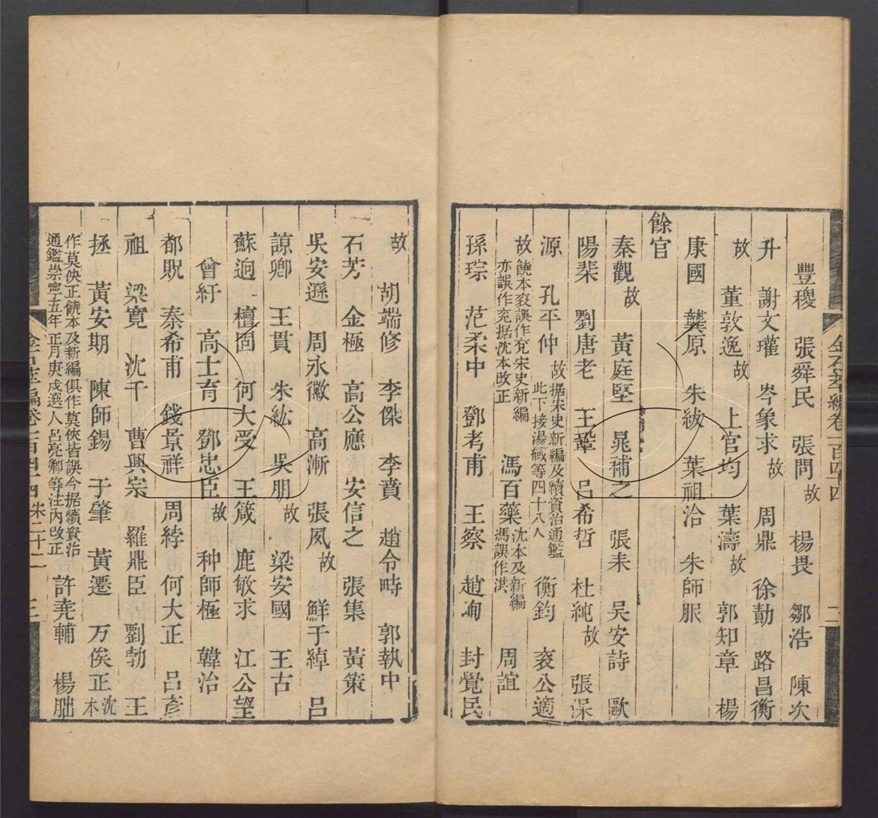 金石萃編卷一百四十四
二
豐稷 張舜民 張問故 楊畏 鄒浩 陳次
升 謝文瓘 岑象求故 周鼎 徐勣 路昌衡
故 董敦逸故 上官均 葉濤故 郭知章 楊
康國 龔原 朱紱 葉祖洽 朱師服
餘官
秦觀故 黃庭堅 晁補之 張耒 吳安詩 歐
陽棐 劉唐老 王鞏 呂希哲 杜純故 張保
源 孔平仲故据宋史新編及續資治通鑑
此下接湯戫等四十八人 衡鈞 袞公適
故饒本袞誤作兖宋史新編
亦誤作兖据沈本改正 馮百藥沈本及新編
馮誤作洪 周誼
孫琮 范柔中 鄧考甫 王察 趙峋 封覺民
故 胡端修 李傑 李賁 趙令時 郭執中
石芳 金極 高公應 安信之 張集 黃策
吳安遜 周永徽 高漸 張夙故 鮮于綽 呂
諒卿 王貫 朱紘 吳朋故 梁安國 王古
蘇迥 檀固 何大受 王箴 鹿敏求 江公望
曾紆 高士育 鄧忠臣故 种師極 韓治
都貺 秦希甫 錢景祥 周綍 何大正 呂彥
祖 梁寬 沈千 曹興宗 羅鼎臣 劉勃 王
拯 黃安期 陳師錫 于肇 黃遷 万俟正沈
本
作莫俠正饒本及新編俱作莫俠皆誤今据續資治
通鑑崇寧五年正月庚戌選人呂亮卿等注内改正 許堯輔 楊朏
金石萃編卷一百四十四 宋二十二
三